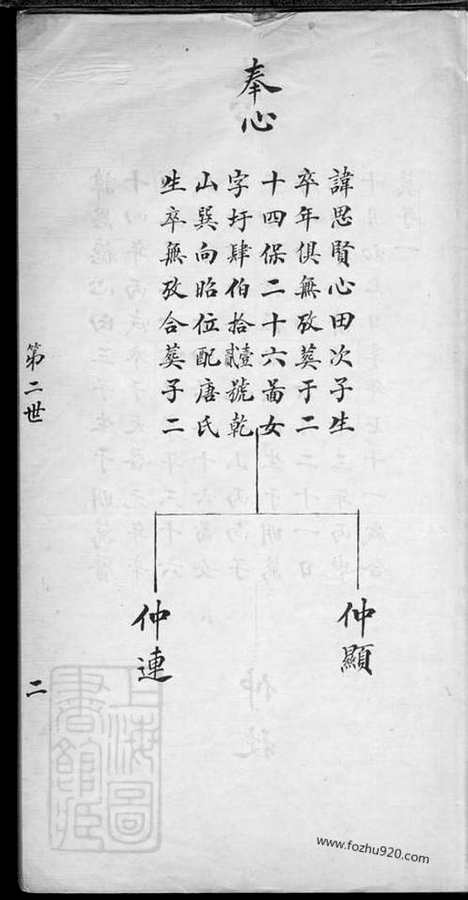 奉心
諱思賢心田次子生
卒年俱無攷葬于二
十四保二十六啚女
字圩肆伯拾貳壹號乾
山巽向昭位配唐氏
生卒無攷合葬子二
仲顯
仲連
第二世
二
上海圖書館藏
www.fozhu920.com